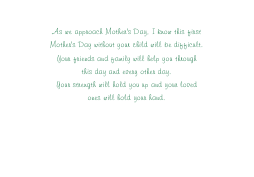 As we approach Mother's Day, I know this first
Mother's Day without your child will be difficult.
Your friends and family will help you through
this day and every other day.
Your strength will hold you up and your loved
ones will hold your hand.